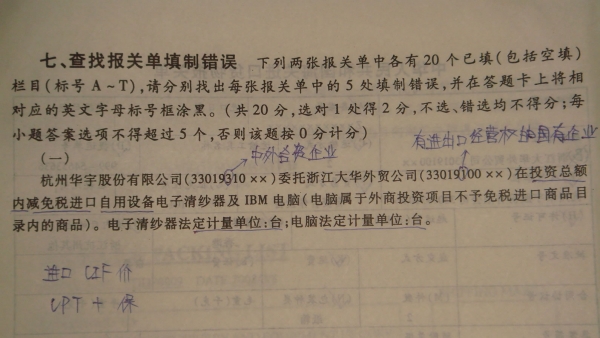 七、查找报关单填制错误 下列两张报关单中各有 20 个已填(包括空填)
栏目(标号 A~T),请分别找出每张报关单中的 5 处填制错误,并在答题卡上将相
对应的英文字母标号框涂黑。(共 20 分,选对 1 处得 2 分,不选、错选均不得分;每
小题答案选项不得超过 5 个,否则该题按 0 分计分)
(一)
中外合资企业
有进出口经营权 国有企业
杭州华宇股份有限公司(33019310 ××)委托浙江大华外贸公司(33019100 ××)在投资总额
内减免税进口自用设备电子清纱器及 IBM 电脑(电脑属于外商投资项目不予免税进口商品目
录内的商品)。电子清纱器法定计量单位:台;电脑法定计量单位:台。
进口 CIF 价
CPT + 保